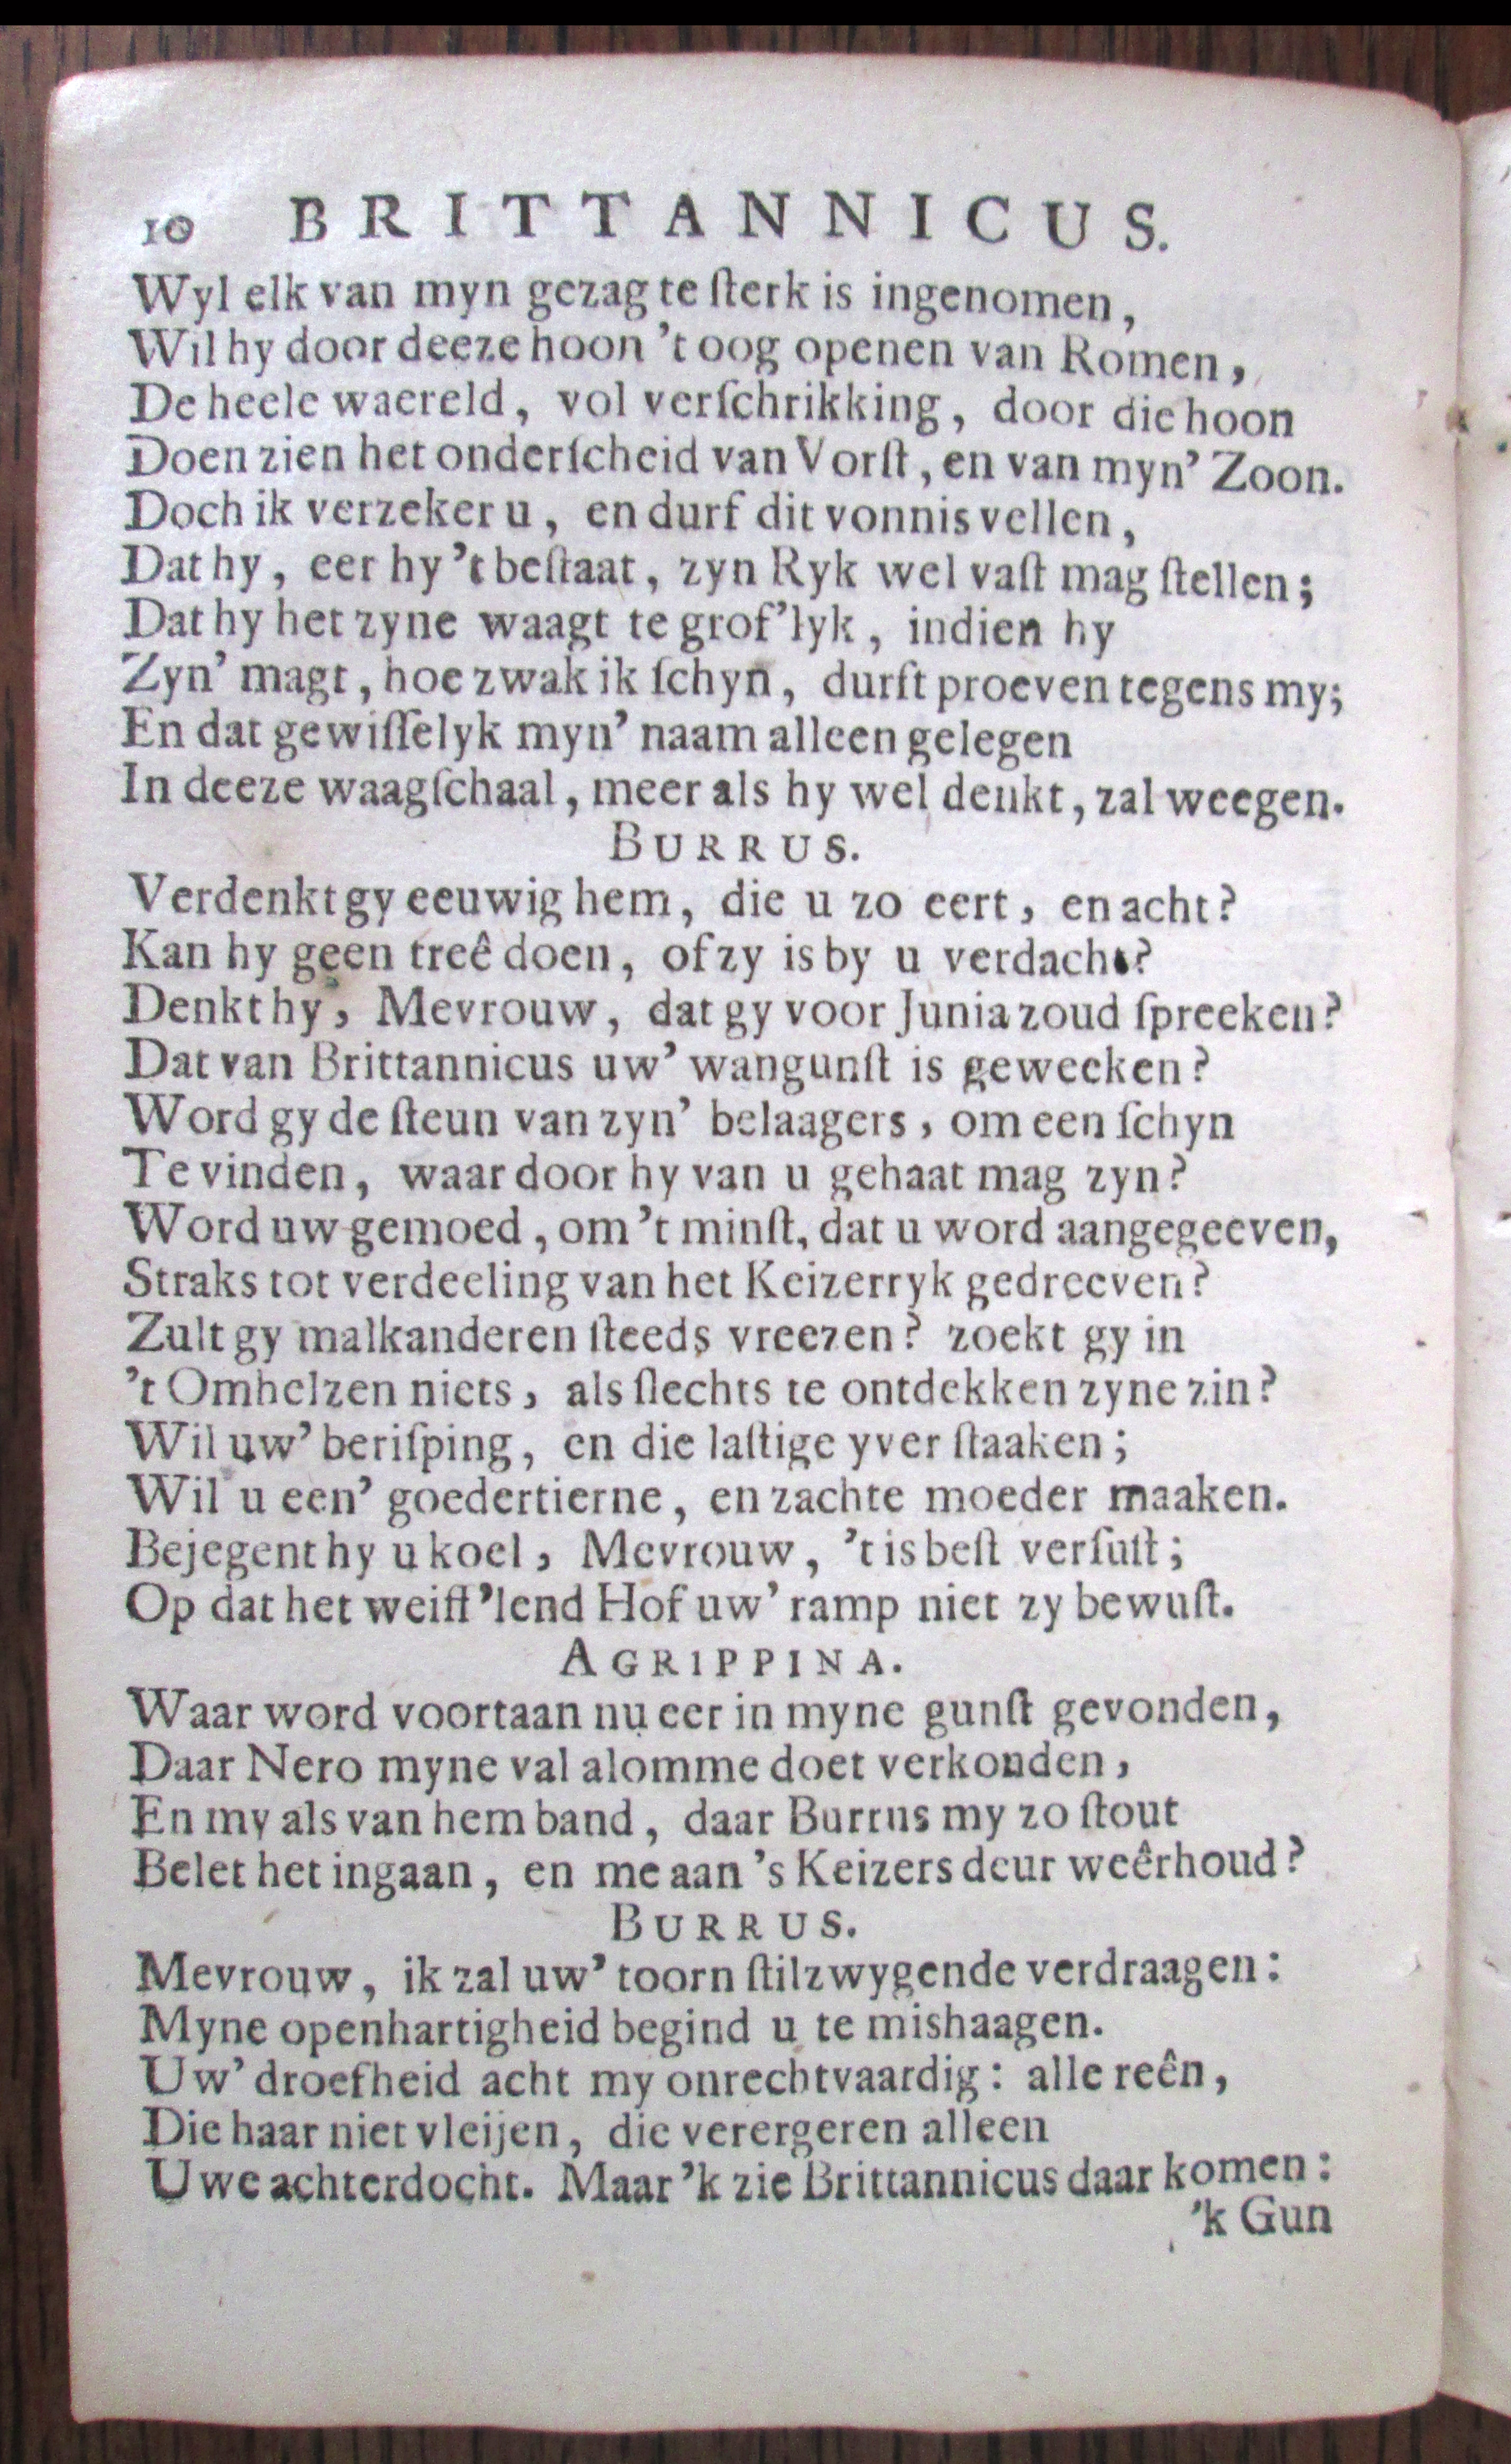 10 BRITTANNICUS.
Wyl elk van myn gezag te ſterk is ingenomen,
Wil hy door deeze hoon 't oog openen van Romen,
De heele waereld, vol verſchrikking, door die hoon
Doen zien het onderſcheid van Vorſt, en van myn' Zoon.
Doch ik verzeker u, en durf dit vonnis vellen,
Dat hy, eer hy 't beſtaat, zyn Ryk wel vaſt mag ſtellen;
Dat hy het zyne waagt te grof'lyk, indien hy
Zyn' magt, hoe zwak ik ſchyn, durſt proeven tegens my;
En dat gewiſſelyk myn' naam alleen gelegen
In deeze waagſchaal, meer als hy wel denkt, zal weegen.
BURRUS.
Verdenkt gy eeuwig hem, die u zo eert, en acht?
Kan hy geen treê doen, of zy is by u verdacht?
Denkt hy, Mevrouw, dat gy voor Junia zoud ſpreeken?
Dat van Brittannicus uw' wangunſt is geweeken?
Word gy de ſteun van zyn' belaagers, om een ſchyn
Te vinden, waar door hy van u gehaat mag zyn?
Word uw gemoed, om 't minſt, dat u word aangegeeven,
Straks tot verdeeling van het Keizerryk gedreeven?
Zult gy malkanderen ſteeds vreezen? zoekt gy in
't Omhelzen niets, als ſlechts te ontdekken zyne zin?
Wil uw' beriſping, en die laſtige yver ſtaaken;
Wil u een' goedertierne, en zachte moeder maaken.
Bejegent hy u koel, Mevrouw, 't is beſt verſuſt;
Op dat het weiff'lend Hof uw' ramp niet zy bewuſt.
AGRIPPINA.
Waar word voortaan nu eer in myne gunſt gevonden,
Daar Nero myne val alomme doet verkonden,
En my als van hem band, daar Burrus my zo ſtout
Belet het ingaan, en me aan 's Keizers deur weêrhoud?
BURRUS.
Mevrouw, ik zal uw' toorn ſtilzwygende verdraagen:
Myne openhartigheid begind u te mishaagen.
Uw' droefheid acht my onrechtvaardig: alle reên,
Die haar niet vleijen, die verergeren alleen
Uwe achterdocht. Maar 'k zie Brittannicus daar komen:
'k Gun